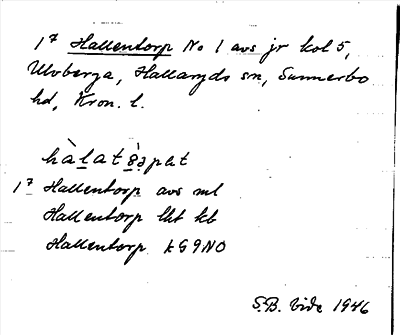 1⁷ Hallentorp No 1 avs jr kol 5,
Ulvberga, Hallaryds sn, Sunnerbo
hd, Kron. l.
hàlat
1⁷ Hallentorp avs ml
Hallentorp lht kb
Hallentorp kG9NO
S.B. Vide 1946